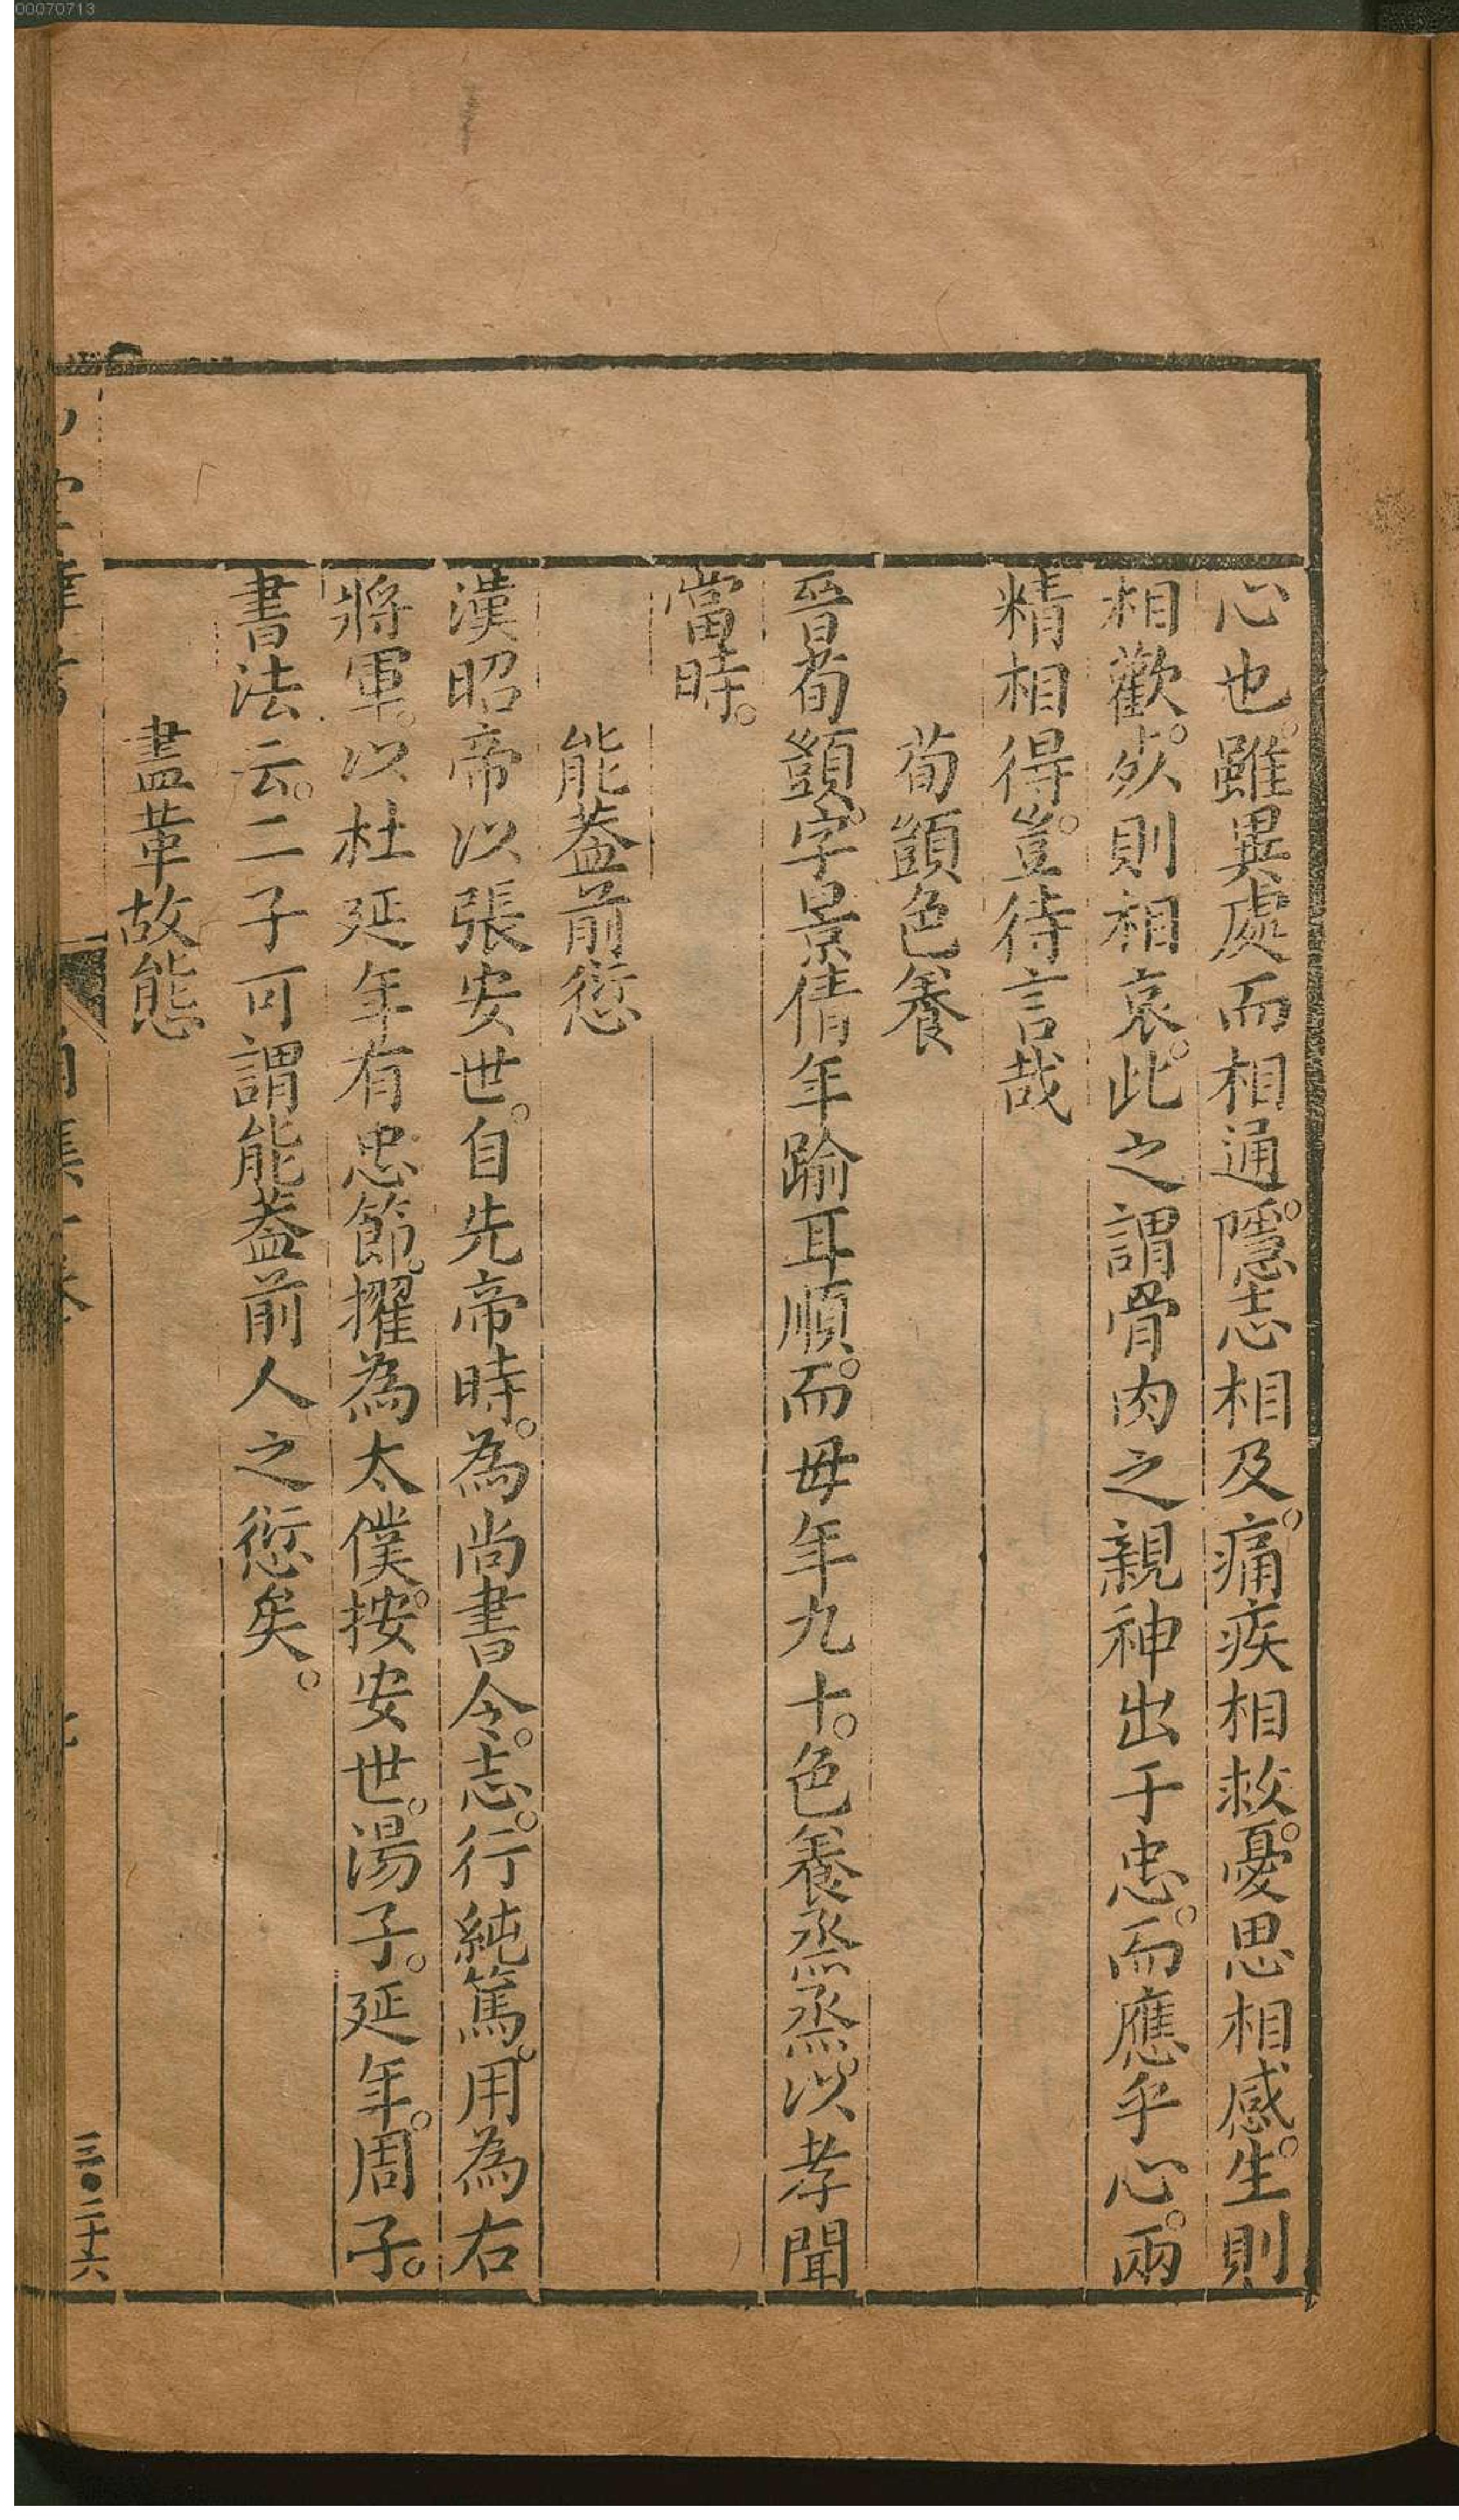 00070713
心也。雖異處而相通。隱志相及。痛疾相救。憂思相感。生則
相歡。死則相哀。此之謂骨肉之親神出于忠。而應乎心。兩
精相得。豈待言哉
荀顗色養
晉荀顗。字景倩年踰耳順。而母年九十。色養烝烝。以孝聞
當時。
能葢前愆
漢昭帝以張安世。自先帝時。為尚書令。志。行純篤。用為右
將軍。以杜延年有忠節。擢為太僕。按安世。湯子。延年。周子。
書法云。二子可謂能葢前人之愆矣。
盡革故態
三●二十六